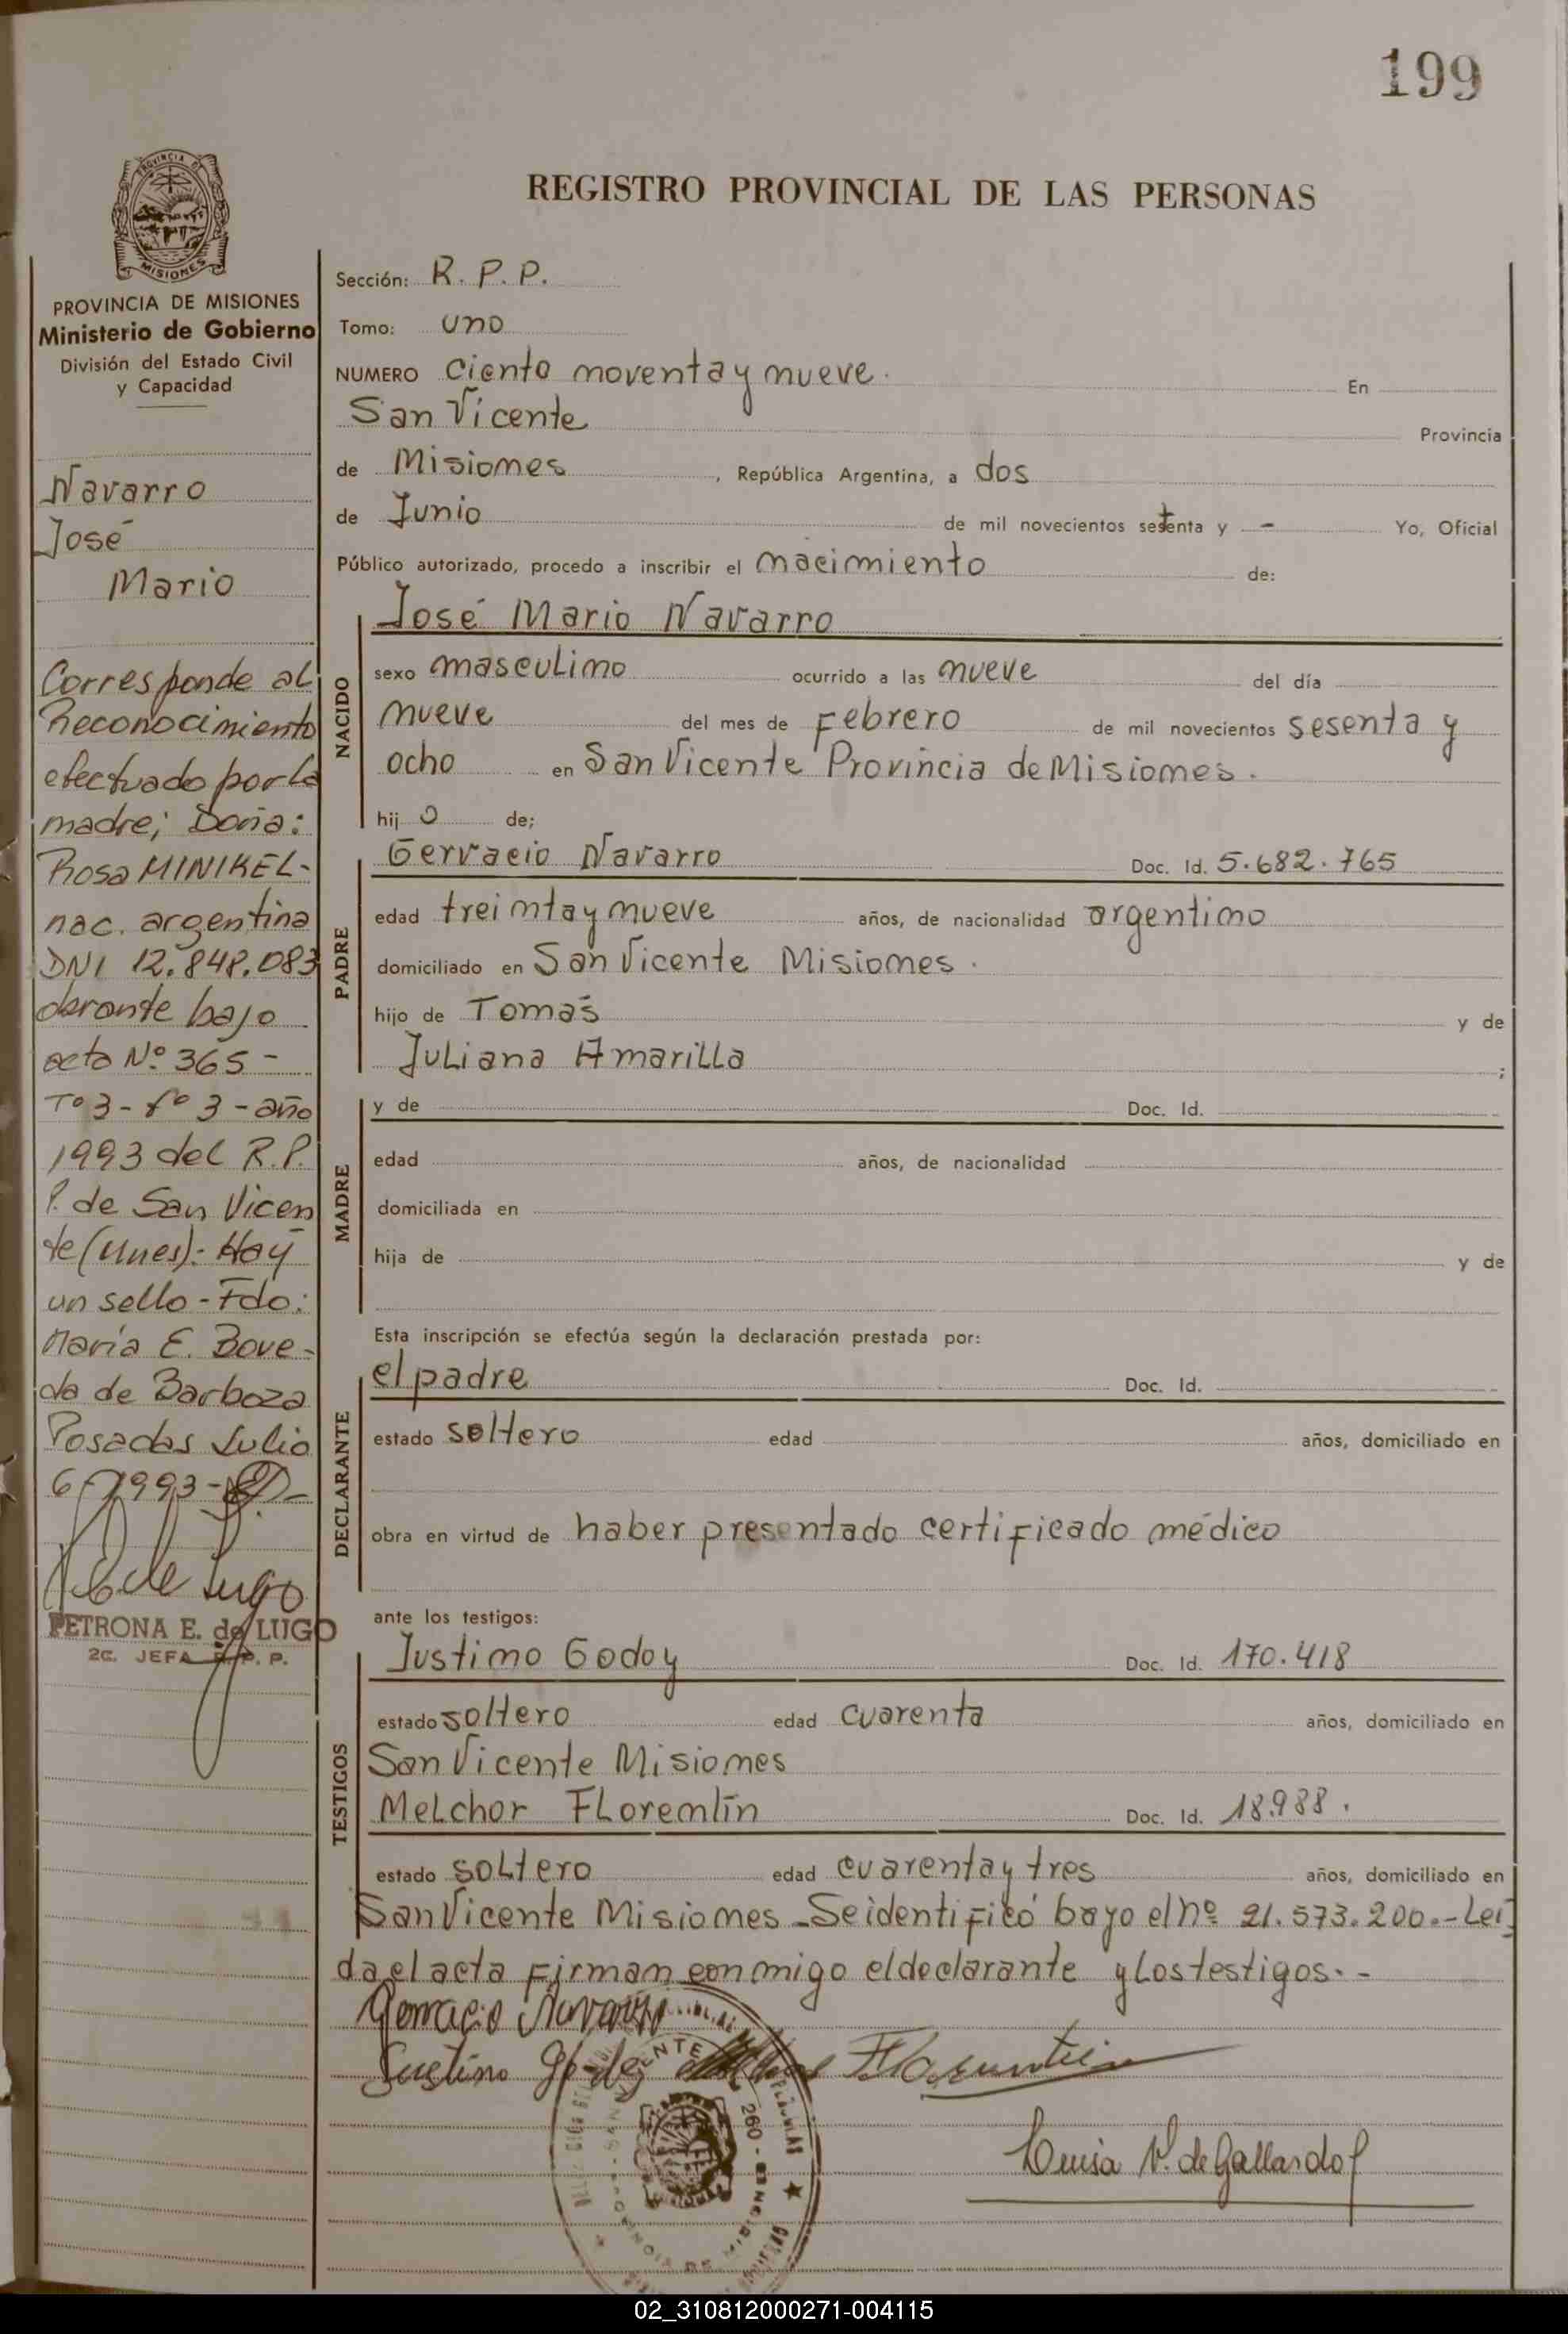 199
REGISTRO PROVINCIAL DE LAS PERSONAS
PROVINCIA DE
MISIONES
PROVINCIA DE MISIONES
Ministerio de Gobierno
División del Estado Civil
y Capacidad
Navarro
José
Mario
Corresponde al
Reconocimiento
efectuado por la
madre; Doña:
Rosa MINIKEL-
nac. argentina
DNI 12.848.083
bajo
acta Nº 365 -
Tº 3 - fº 3 - año
1993 del R.P.
P. de San Vicen
te (Mnes).- Hay
un sello - Fdo:
María E. Bove-
da de Barboza
Posadas Julio
6-1993-
PETRONA E. de LUGO
2a. JEFA R. P. P.
Sección: R. P. P.
Tomo: uno
NUMERO Ciento noventa y nueve. En
San Vicente Provincia
de Misiones, República Argentina, a dos
de Junio de mil novecientos setenta y - Yo, Oficial
Público autorizado, procedo a inscribir el nacimiento de:
NACIDO
José Mario Navarro
sexo masculino ocurrido a las nueve del día
nueve del mes de Febrero de mil novecientos sesenta y
ocho en San Vicente Provincia de Misiones.
hij o de;
PADRE
Gervacio Navarro Doc. Id. 5.682.765
edad treinta y nueve años, de nacionalidad argentino
domiciliado en San Vicente Misiones.
hijo de Tomás y de
Juliana Amarilla ;
MADRE
y de Doc. Id.
edad años, de nacionalidad
domiciliada en
hija de y de
Esta inscripción se efectúa según la declaración prestada por:
DECLARANTE
el padre Doc. Id.
estado soltero edad años, domiciliado en
obra en virtud de haber presentado certificado médico
ante los testigos:
TESTIGOS
Justino Godoy Doc. Id. 170.418
estado soltero edad cuarenta años, domiciliado en
San Vicente Misiones
Melchor Florentín Doc. Id. 18.988.
estado soltero edad cuarenta y tres años, domiciliado en
San Vicente Misiones - Se identificó bajo el nº 21.573.200.- Leí
da el acta firman conmigo el declarante y los testigos.-
Gervacio Navarro
Justino Godoy Florentín
Luisa V. de Gallardo
02_310812000271-004115